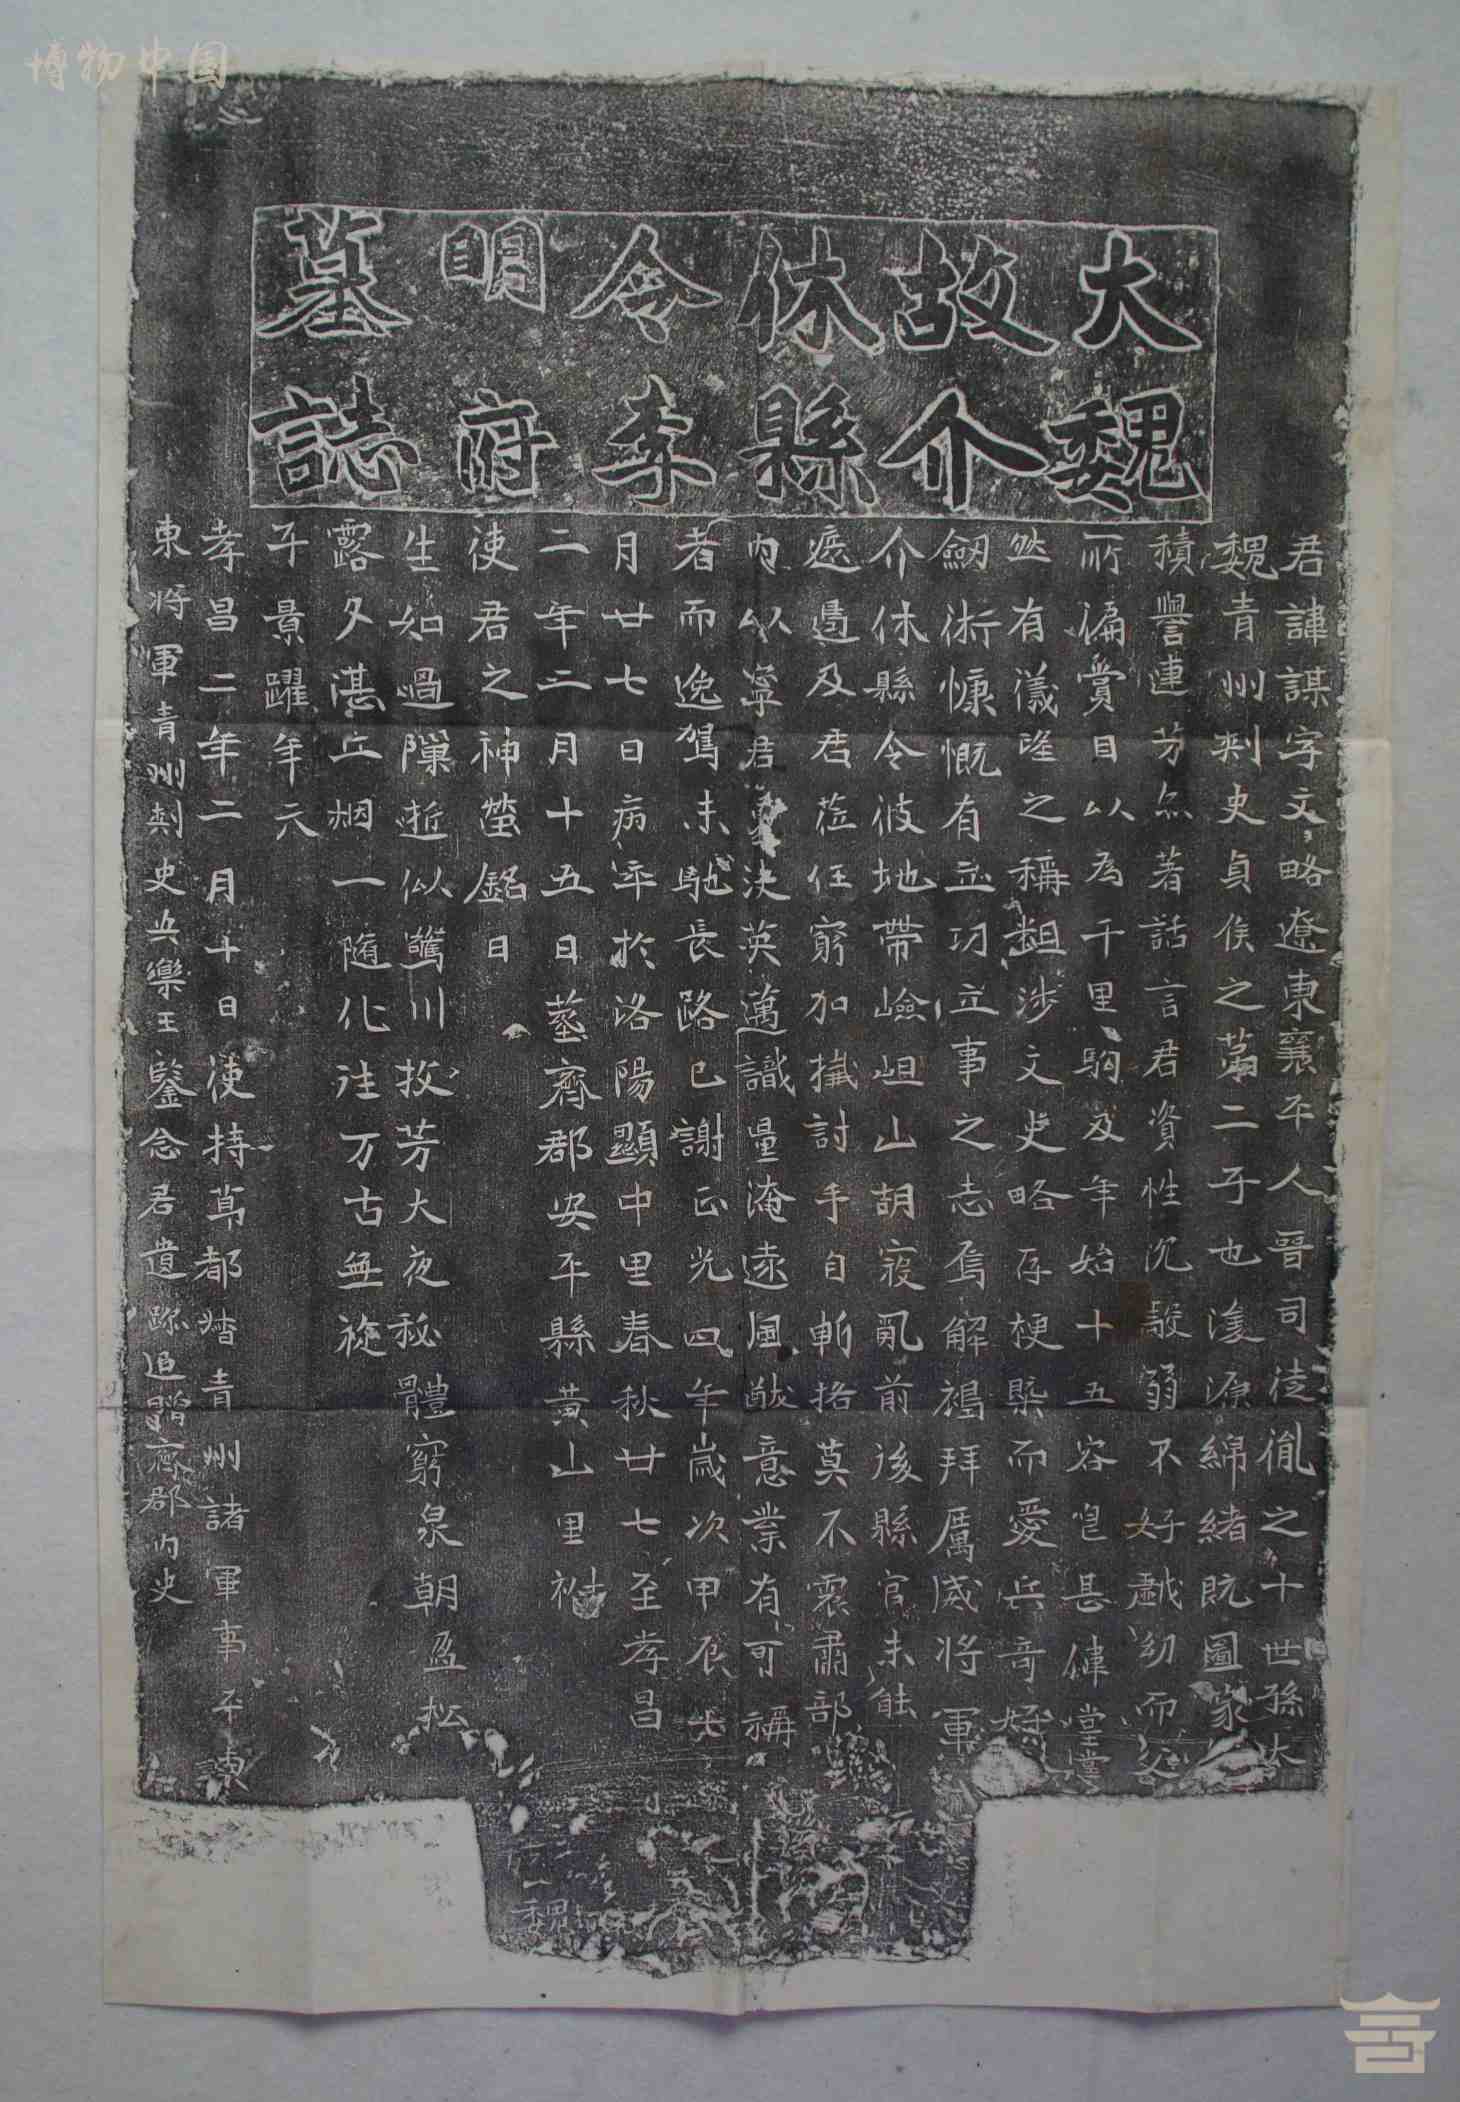 博物中国
大魏
故介
休縣
令李
明府
墓誌
君諱謀字文略遼東襄平人晉司徒胤之十世孫大
魏青州刺史貞侯之第二子也濬源綿緒既圖家
積譽連芳亦著話言君資性沉毅弱不好戲幼而父
所偏賞目以為千里駒及年始十五容皃甚偉堂堂
然有儀望之稱粗涉文史略存梗槩而愛兵奇好
劔術慷慨有立功立事之志焉解褐拜厲威將軍
介休縣令彼地帶嶮岨山胡寇亂前後縣官未能
遮遏及君莅任窮加擒討手自斬挌莫不震肅部
內以寧君憂決英邁識量淹遠風猷意業有可稱
者而逸駕未馳長路已謝正光四年歲次甲辰七
月廿七日病卒於洛陽顯中里春秋廿七至孝昌
二年二月十五日葬齊郡安平縣黃山里祔
使君之神塋銘曰
生如過隟逝似驚川投芳大夜秘體窮泉朝盈松
露夕湛丘烟一隨化往万古無旋
于景躍年元
孝昌二年二月十日使持莭都督青州諸軍事平東
東將軍青州刺史安樂王鑒念君遺跡追贈齊郡內史